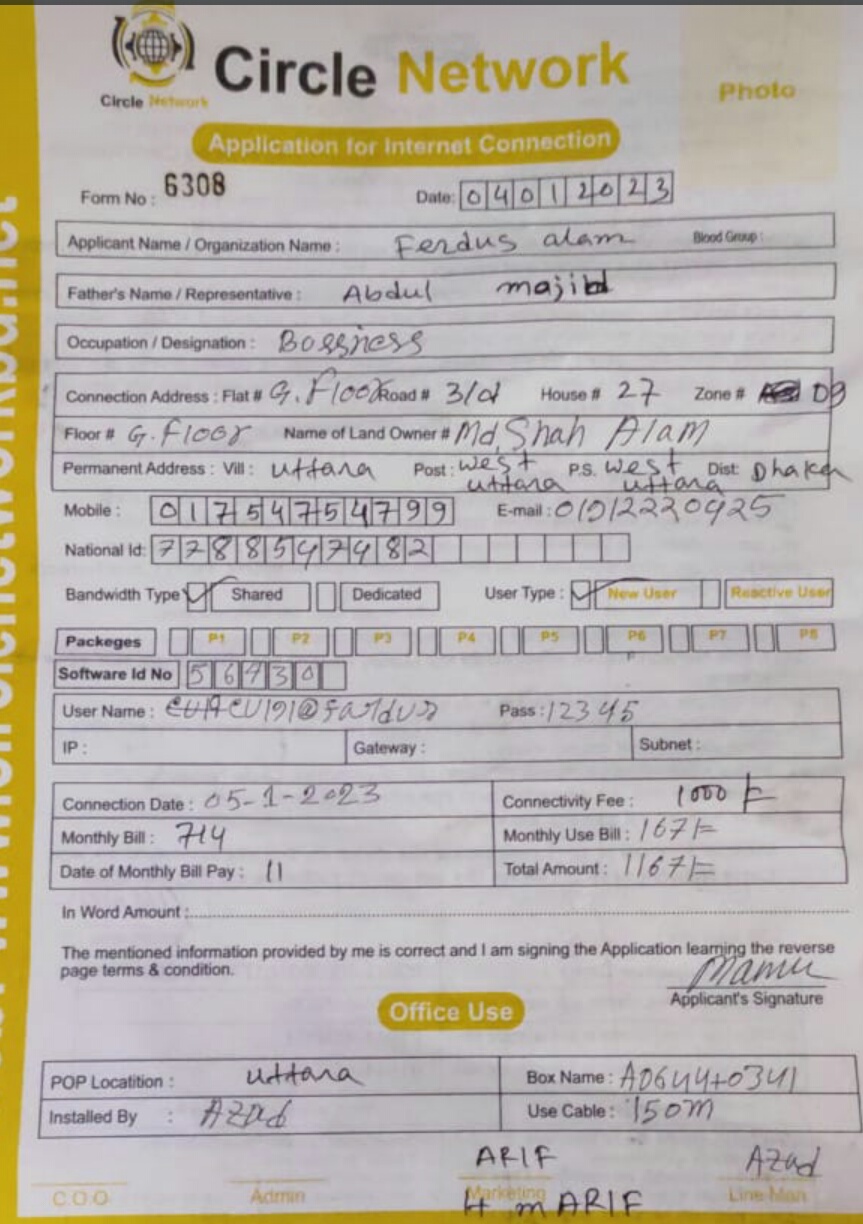 Circle Network
Circle Network
Photo
Application for Internet Connection
Form No : 6308
Date: 04012023
Applicant Name / Organization Name : Ferdus alam Blood Group :
Father's Name / Representative : Abdul majid
Occupation / Designation : Bossiness
Connection Address : Flat # G. Floor Road # 3/d House # 27 Zone # D9
Floor # G. Floor Name of Land Owner # Md, Shah Alam
Permanent Address : Vill : uttara Post : west uttara P.S. west uttara Dist: Dhaka
Mobile : 01754754799 E-mail :
National Id: 7788547482
Bandwidth Type Shared Dedicated User Type : New User Reactive User
Packeges P1 P2 P3 P4 P5 P6 P7 P8
Software Id No 56430
User Name : Pass : 12345
IP : Gateway : Subnet :
Connection Date : 05-1-2023 Connectivity Fee : 1000/=
Monthly Bill : 714 Monthly Use Bill : 167/=
Date of Monthly Bill Pay : 11 Total Amount : 1167/=
In Word Amount :
The mentioned information provided by me is correct and I am signing the Application learning the reverse
page terms & condition.
Mamu
Applicant's Signature
Office Use
POP Locatition : uttara Box Name : A0644+0341
Installed By : Azad Use Cable : 150m
ARIF Azad
C.O.O Admin Marketing Line Man
ARIF